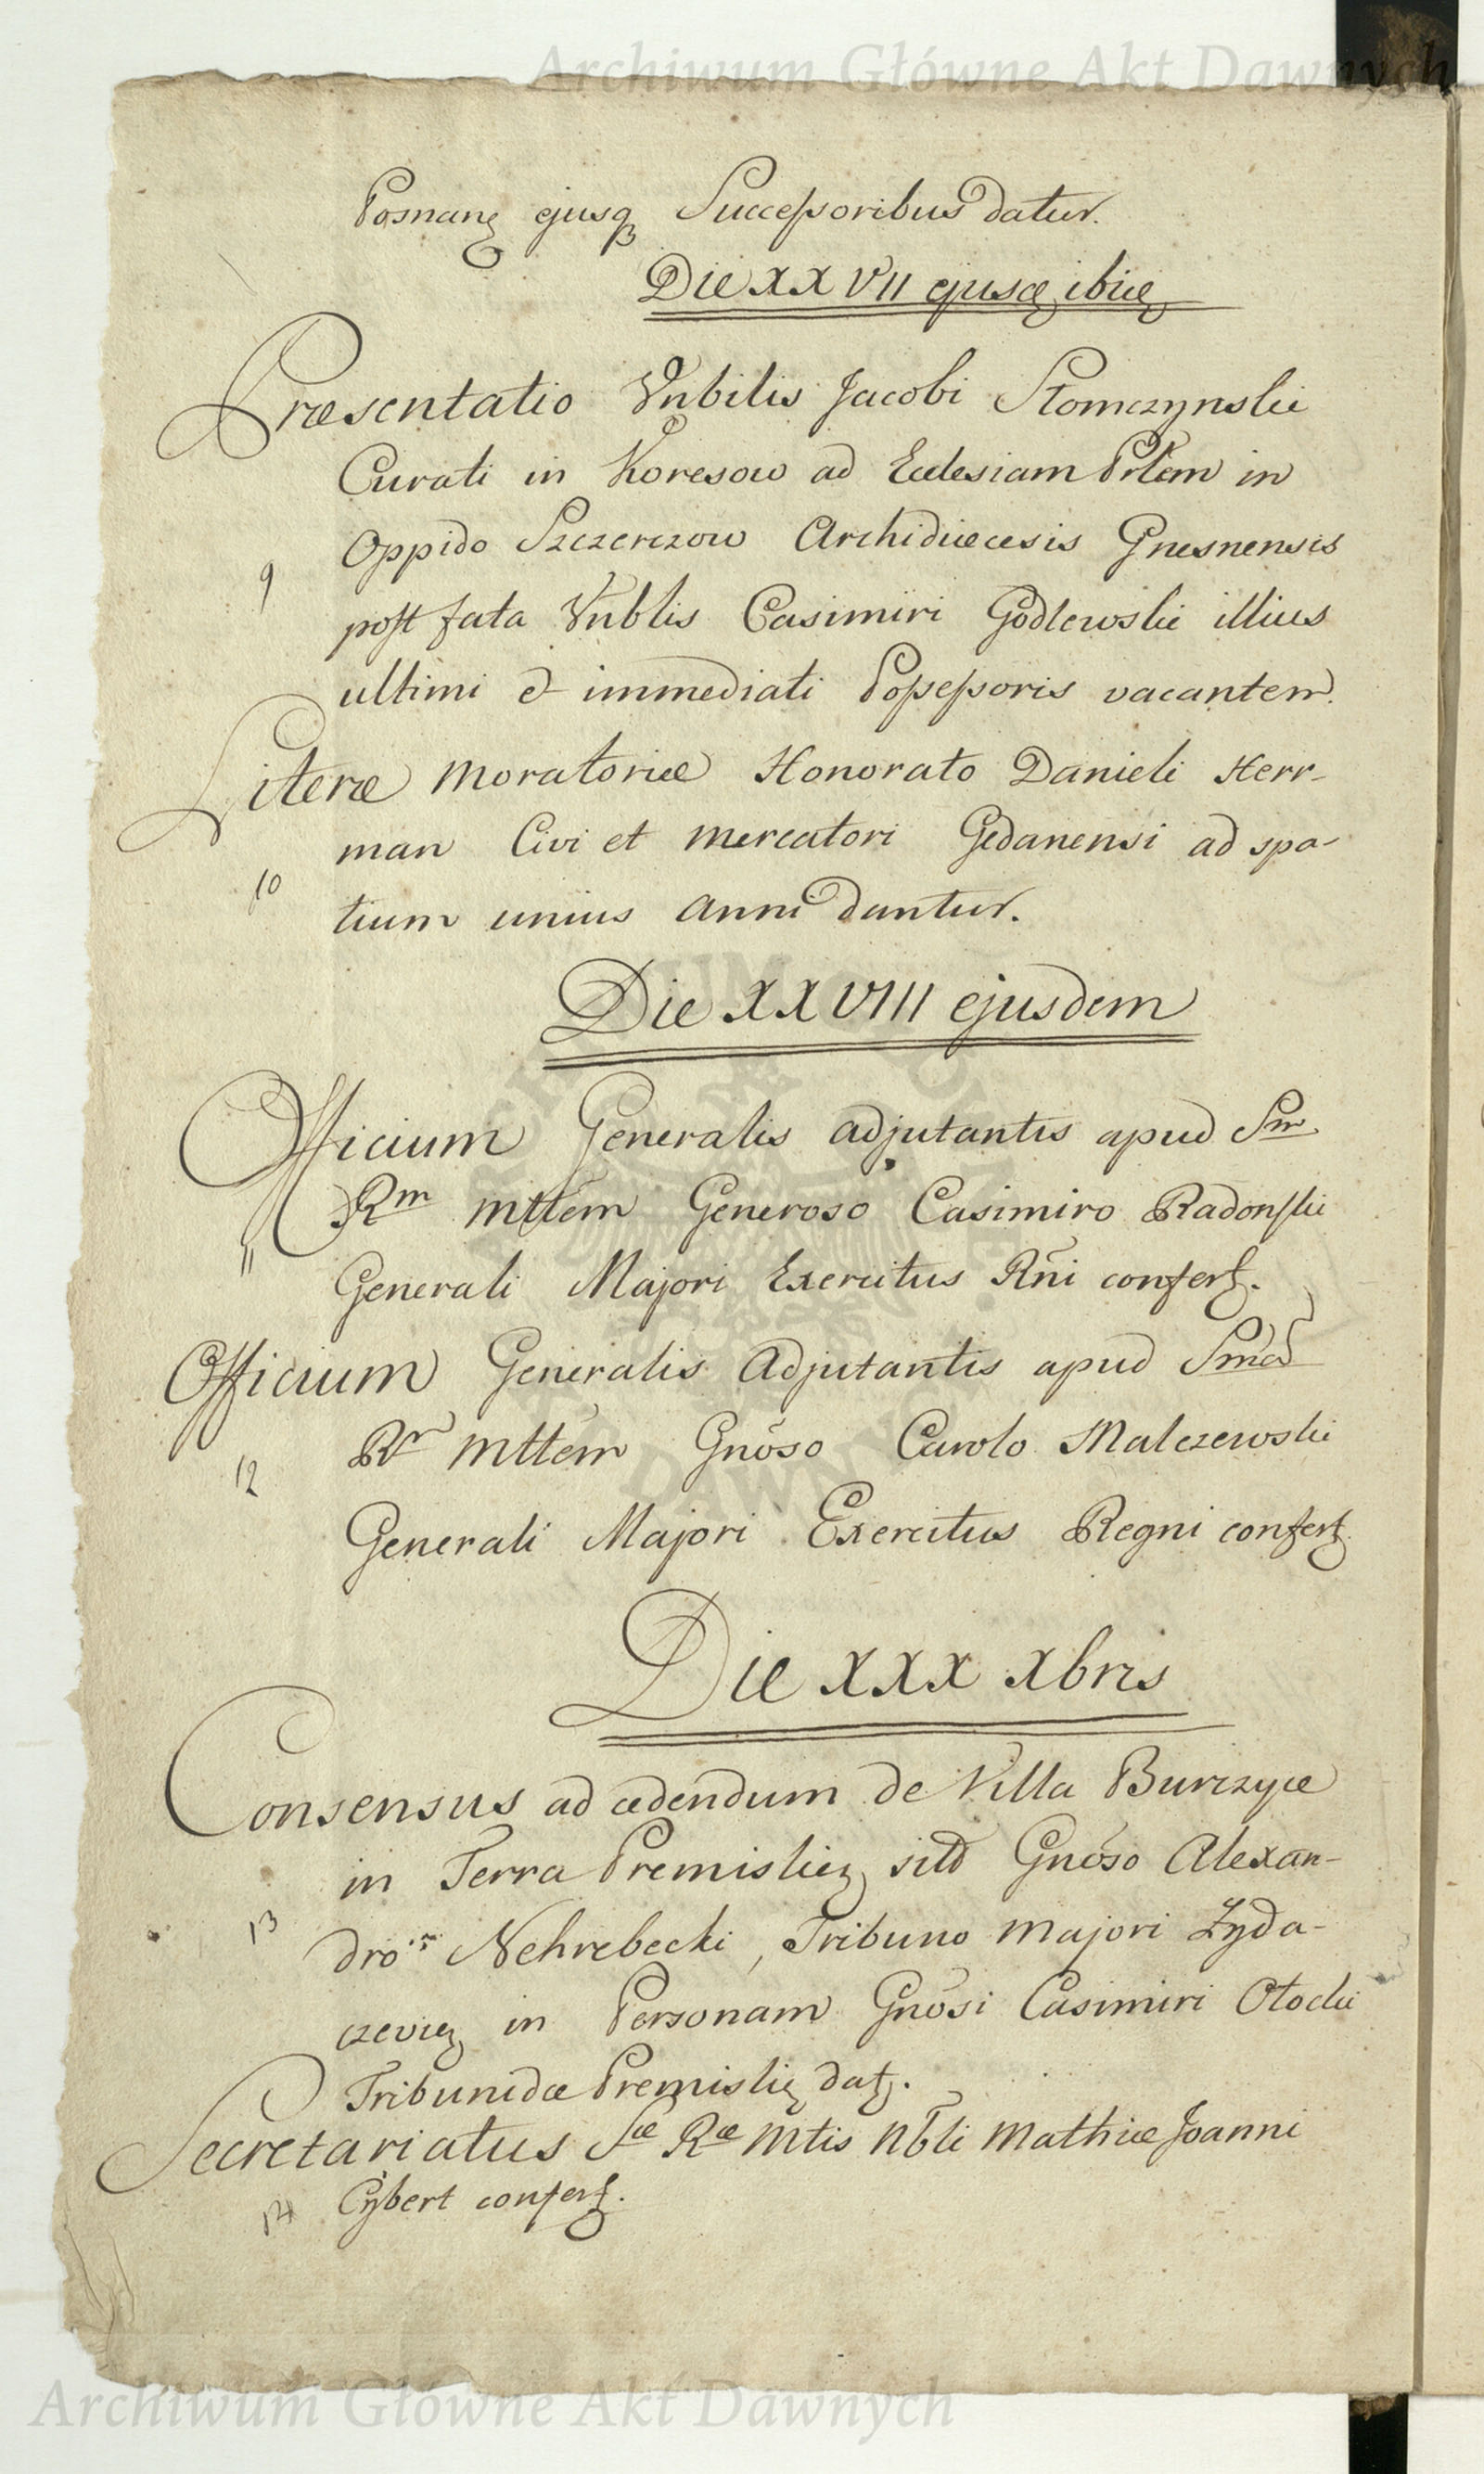 Archiwum Główne Akt Dawnych
Posnanę ejusq Successoribus datur.
Die XXVII ejusdę ibidę
Præsentatio Vnbilis Jacobi Słomczynski
Curati in Koresow ad Ecclesiam Prlem in
Oppido Szczerczow Archidiæcesis Gnesnensis
9
post fata Vnblis Casimiri Godlewski illius
ultimi et immediati Possessoris vacantem.
Literæ Moratoriæ Honorato Danieli Herr-
man Civi et Mercatori Gedanensi ad spa-
10
tium unius Anni dantur.
Die XXVIII ejusdem
Officium Generalis adjutantis apud Sm
Rm Mttem Generoso Casimiro Radonski
11
Generali Majori Exercitus Rñi confert.
Officium Generalis Adjutantis apud
Rm Mttem Gnõso Carolo Malczewski
12
Generali Majori Exercitus Regni confert
Die XXX Xbris
Consensus ad cedendum de Villa Burczyce
in Terra Premislien sitâ Gnõso Alexan-
13
dro Nehrebecki, Tribuno Majori Zyda-
czevien in Personam Gnõsi Casimiri Otocki
Tribunidæ Premislię datę.
Secretariatus Sæ Ræ Mtis Nbli Mathiæ Joanni
14
Cybert confert.
Archiwum Główne Akt Dawnych